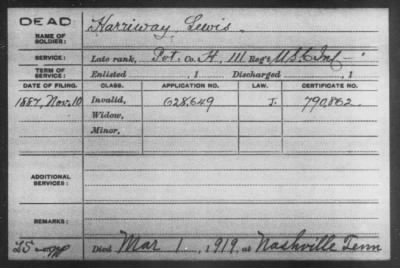 DEAD
NAME OF SOLDIER: Harriway, Lewis.
SERVICE: Late rank, Pvt. Co. H, 111 Reg't U.S.C. Inf
TERM OF SERVICE: Enlisted , 1 Discharged , 1
DATE OF FILING. CLASS. APPLICATION NO. LAW. CERTIFICATE NO.
1887, Nov. 10 Invalid, 628,649 J. 790,862
Widow,
Minor,
ADDITIONAL SERVICES:
REMARKS:
Died Mar 1, 1919, at Nashville Tenn